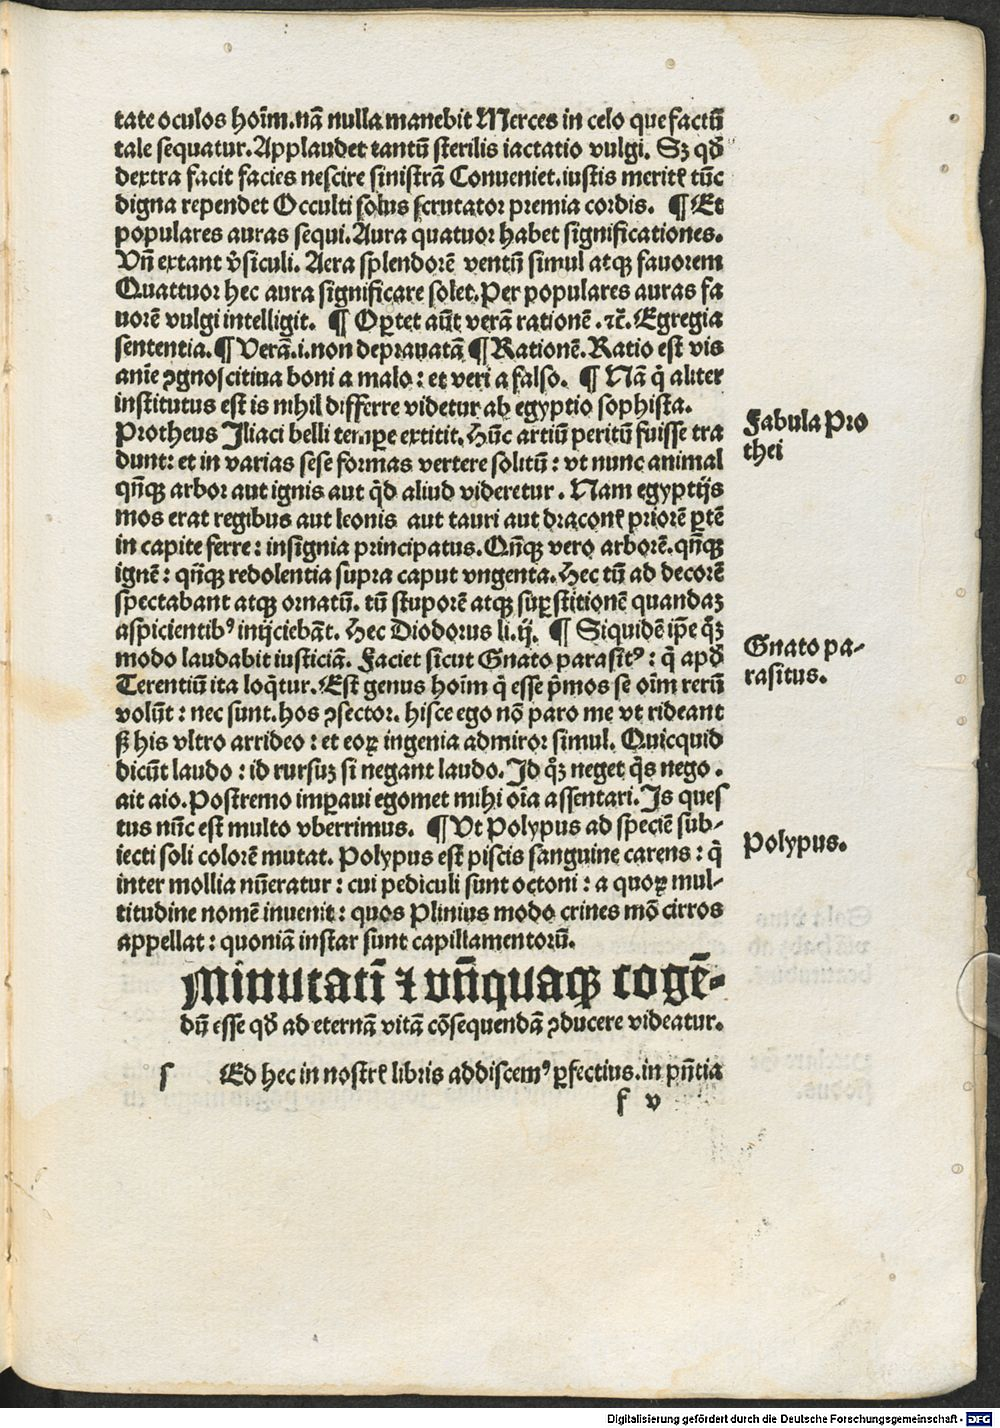 tate oculos hoīm.nā nulla manebit Merces in celo que factū
tale sequatur.Applaudet tantū sterilis iactatio vulgi. Sꝫ qď
dextra facit facies nescire sinistrā Conueniet.iustis meritꝭ tūc
digna rependet Occulti solus scrutator premia cordis. ¶ Et
populares auras sequi.Aura quatuor habet significationes.
Vn̄ extant v̓siculi. Aera splendorē ventū simul atqꝫ fauorem
Quattuor hec aura significare solet.Per populares auras fa
uorē vulgi intelligit. ¶ Oꝑtet aūt verā rationē .⁊c̄. Egregia
sententia.¶ Verā.i.non deprauatā ¶ Rationē.Ratio est vis
anīe ꝯgnoscitiua boni a malo: et veri a falso. ¶ Nā q̇ aliter
institutus est is nihil differre videtur ab egyptio sophista.
Protheus Iliaci belli tempe extitit.Hūc artiū peritū fuisse tra
dunt: et in varias sese formas vertere solitū: vt nunc animal
qn̄qꝫ arbor aut ignis aut q̇d aliud videretur. Nam egyptijs
mos erat regibus aut leonis aut tauri aut draconꝭ priorē ꝑtē
in capite ferre: insignia principatus.Qn̄qꝫ vero arborē.qn̄qꝫ
ignē: qn̄qꝫ redolentia supra caput vngenta.Hec tū ad decorē
spectabant atqꝫ ornatū. tū stuporē atqꝫ suꝑstitionē quandaꝫ
aspicientibꝰ inijciebāt. Hec Diodorus li.ij. ¶ Siquidē ip̄e q̇ꝫ
modo laudabit iusticiā. Faciet sicut Gnato parasitꝰ: q̇ apď
Terentiū ita loq̇tur.Est genus hoīm q̇ esse p̄mos se oīm rerū
volūt: nec sunt.hos ꝯsector. hisce ego nō paro me vt rideant
ꝩ his vltro arrideo: et eoꝝ ingenia admiror simul. Quicquid
dicūt laudo: id rursuꝫ si negant laudo.Id q̇ꝫ neget q̇s nego.
ait aio.Postremo imꝑaui egomet mihi oīa assentari.Is ques
tus nūc est multo vberrimus. ¶ Vt Polypus ad speciē sub-
iecti soli colorē mutat. Polypus est piscis sanguine carens: q̇
inter mollia nūeratur: cui pediculi sunt octoni: a quoꝝ mul-
titudine nomē inuenit: quos Plinius modo crines mō cirros
appellat: quoniā instar sunt capillamentorū.
Minutatī ⁊ vn̄quaqꝫ cogē-
dū esse qď ad eternā vitā cōsequendā ꝯducere videatur.
s Ed hec in nostrꝭ libris addiscemꝰ ꝑfectius.in pn̄tia
f v
Fabula Pro
thei
Gnato pa-
rasitus.
Polypus.
Digitalisierung gefördert durch die Deutsche Forschungsgemeinschaft - DFG